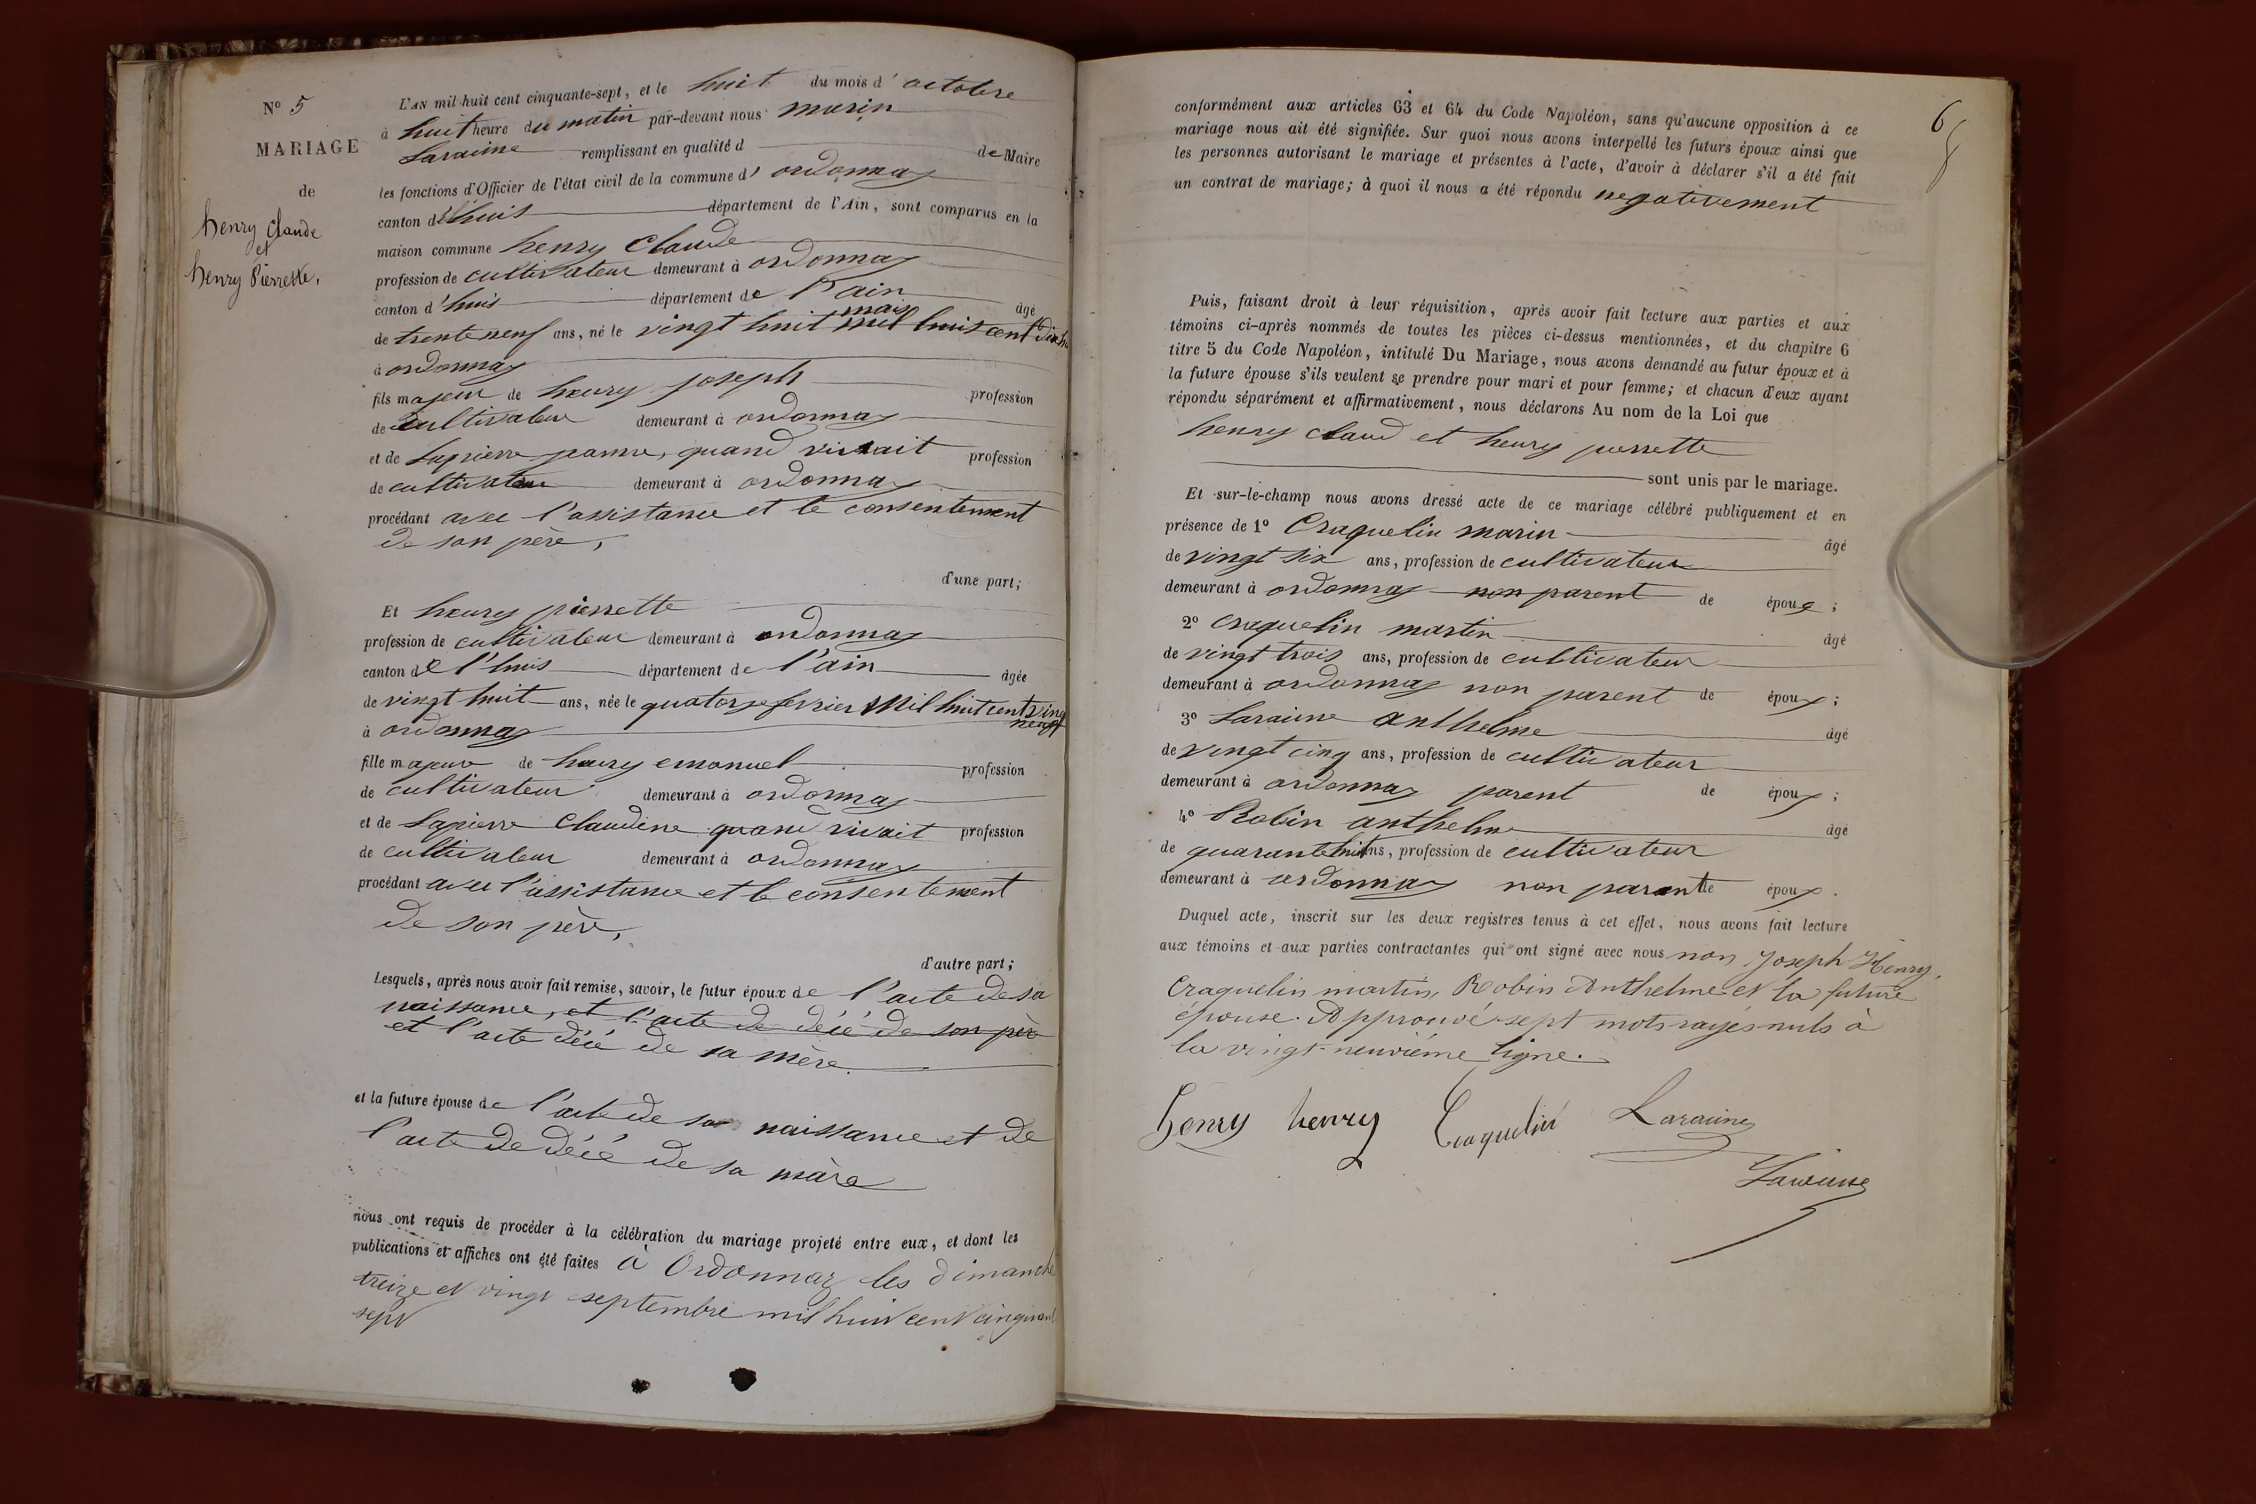 N° 5
MARIAGE
de
henry Claude
et
henry Pierrette,
L'AN mil huit cent cinquante-sept, et le huit du mois d'octobre
à huit heure du matin par-devant nous marin
Laraime remplissant en qualité d de Maire
les fonctions d'Officier de l'état civil de la commune d'ordonnaz
canton d'lhuis département de l'Ain, sont comparus en la
maison commune henry Claude
profession de cultivateur demeurant à ordonnaz
canton d'huis département de l'ain âgé
mais
de trente neuf ans, né le vingt huit mil huit cent dix hu
à ordonnaz
fils majeur de henry joseph profession
de cultivateur demeurant à ordonnaz
et de Lapierre quand vivait profession
de cultivateur demeurant à ordonnaz
procédant avec l'assistance et le consentement
de son père,
d'une part;
Et henry pierrette
profession de cultivateur demeurant à ordonnaz
canton de l'huis département de l'ain âgée
de vingt huit ans, née le quatorze fevrier mil huit cent ving
neuf
à ordonnaz
fille majeure de henry emonuel profession
de cultivateur demeurant à ordonnaz
et de Lapierre Claudine quand vivait profession
de cultivateur demeurant à ordonnaz
procédant avec l'assistance et le consentement
de son père,
d'autre part;
Lesquels, après nous avoir fait remise, savoir, le futur époux de l'acte de sa
naissance, et l'acte de décé de son père
et l'acte décé de sa mère.
et la future épouse de l'acte de sa naissance et de
l'acte de décé de sa mère
nous ont requis de procéder à la célébration du mariage projeté entre eux, et dont les
publications et affiches ont été faites à Ordonnaz les dimanche
treize et vingt septembre mil huit cent cinquant
sept
6
conformément aux articles 63 et 64 du Code Napoléon, sans qu'aucune opposition à ce
mariage nous ait été signifiée. Sur quoi nous avons interpellé les futurs époux ainsi que
les personnes autorisant le mariage et présentes à l'acte, d'avoir à déclarer s'il a été fait
un contrat de mariage; à quoi il nous a été répondu negativement
Puis, faisant droit à leur réquisition, après avoir fait lecture aux parties et aux
témoins ci-après nommés de toutes les pièces ci-dessus mentionnées, et du chapitre 6
titre 5 du Code Napoléon, intitulé Du Mariage, nous avons demandé au futur époux et à
la future épouse s'ils veulent se prendre pour mari et pour femme; et chacun d'eux ayant
répondu séparément et affirmativement, nous déclarons Au nom de la Loi que
henry claud et henry pierrette
sont unis par le mariage.
Et sur-le-champ nous avons dressé acte de ce mariage célébré publiquement et en
présence de 1° Craquelin marin âgé
de vingt six ans, profession de cultivateur
demeurant à ordonnaz non parent de époux;
2° Craquelin martin âgé
de vingt trois ans, profession de cultivateur
demeurant à ordonnaz non parent de époux;
3° Laraime anthelme âgé
de vingt cinq ans, profession de cultivateur
demeurant à ordonnaz parent de époux;
4° Robin anthelme âgé
de quarante huit ans, profession de cultivateur
demeurant à ordonnaz non parent de époux.
Duquel acte, inscrit sur les deux registres tenus à cet effet, nous avons fait lecture
aux témoins et aux parties contractantes qui ont signé avec nous non Joseph Henry,
Craquelin martin, Robin Anthelme et la future
épouse. Approuvé sept mots rayés nuls à
la vingt-neuvième ligne.
henry henry Craquelin Laraime
Laraime